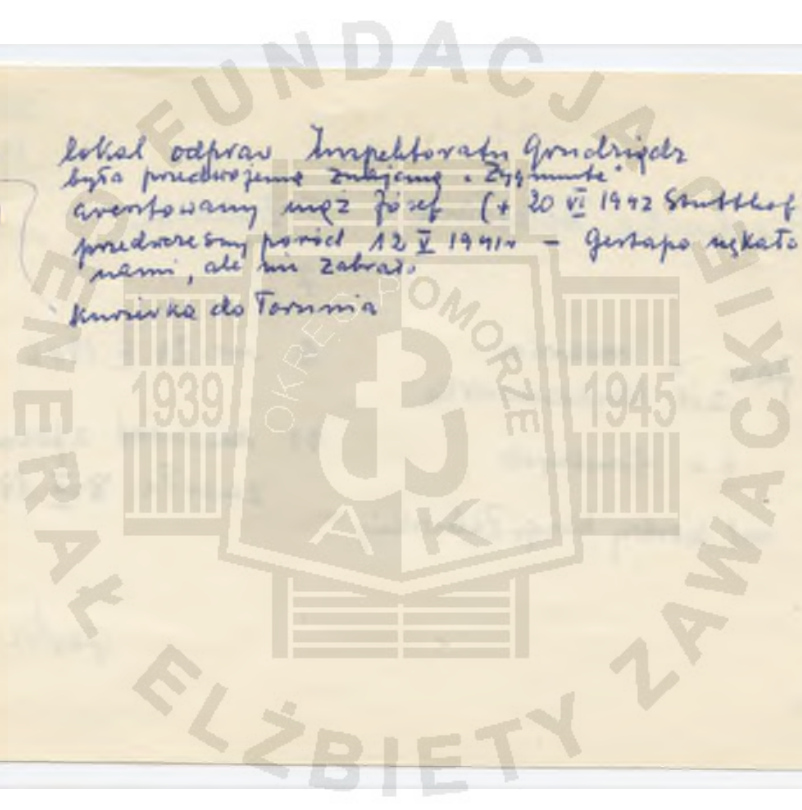 lokal odpraw Inspektoratu Grudziądz
była przedwojenną znajomą "Zygmunta"
aresztowany mąż Józef (+ 20 VI 1942 Stutthof
przedwczesny poród 12 V 1941r – Gestapo nękało
nami, ale nie zabrało
kurierka do Torunia
FUNDACJA
GENERAŁ ELŻBIETY ZAWACKIEJ
OKRĘG POMORZE
1939
1945
AK